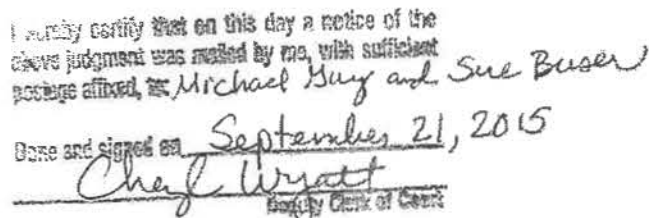 I hereby certify that on this day a notice of the
above judgment was mailed by me, with sufficient
postage affixed, to: Michael Guy and Sue Buser
Done and signed on September 21, 2015
Cheryl Wyatt
Deputy Clerk of Court